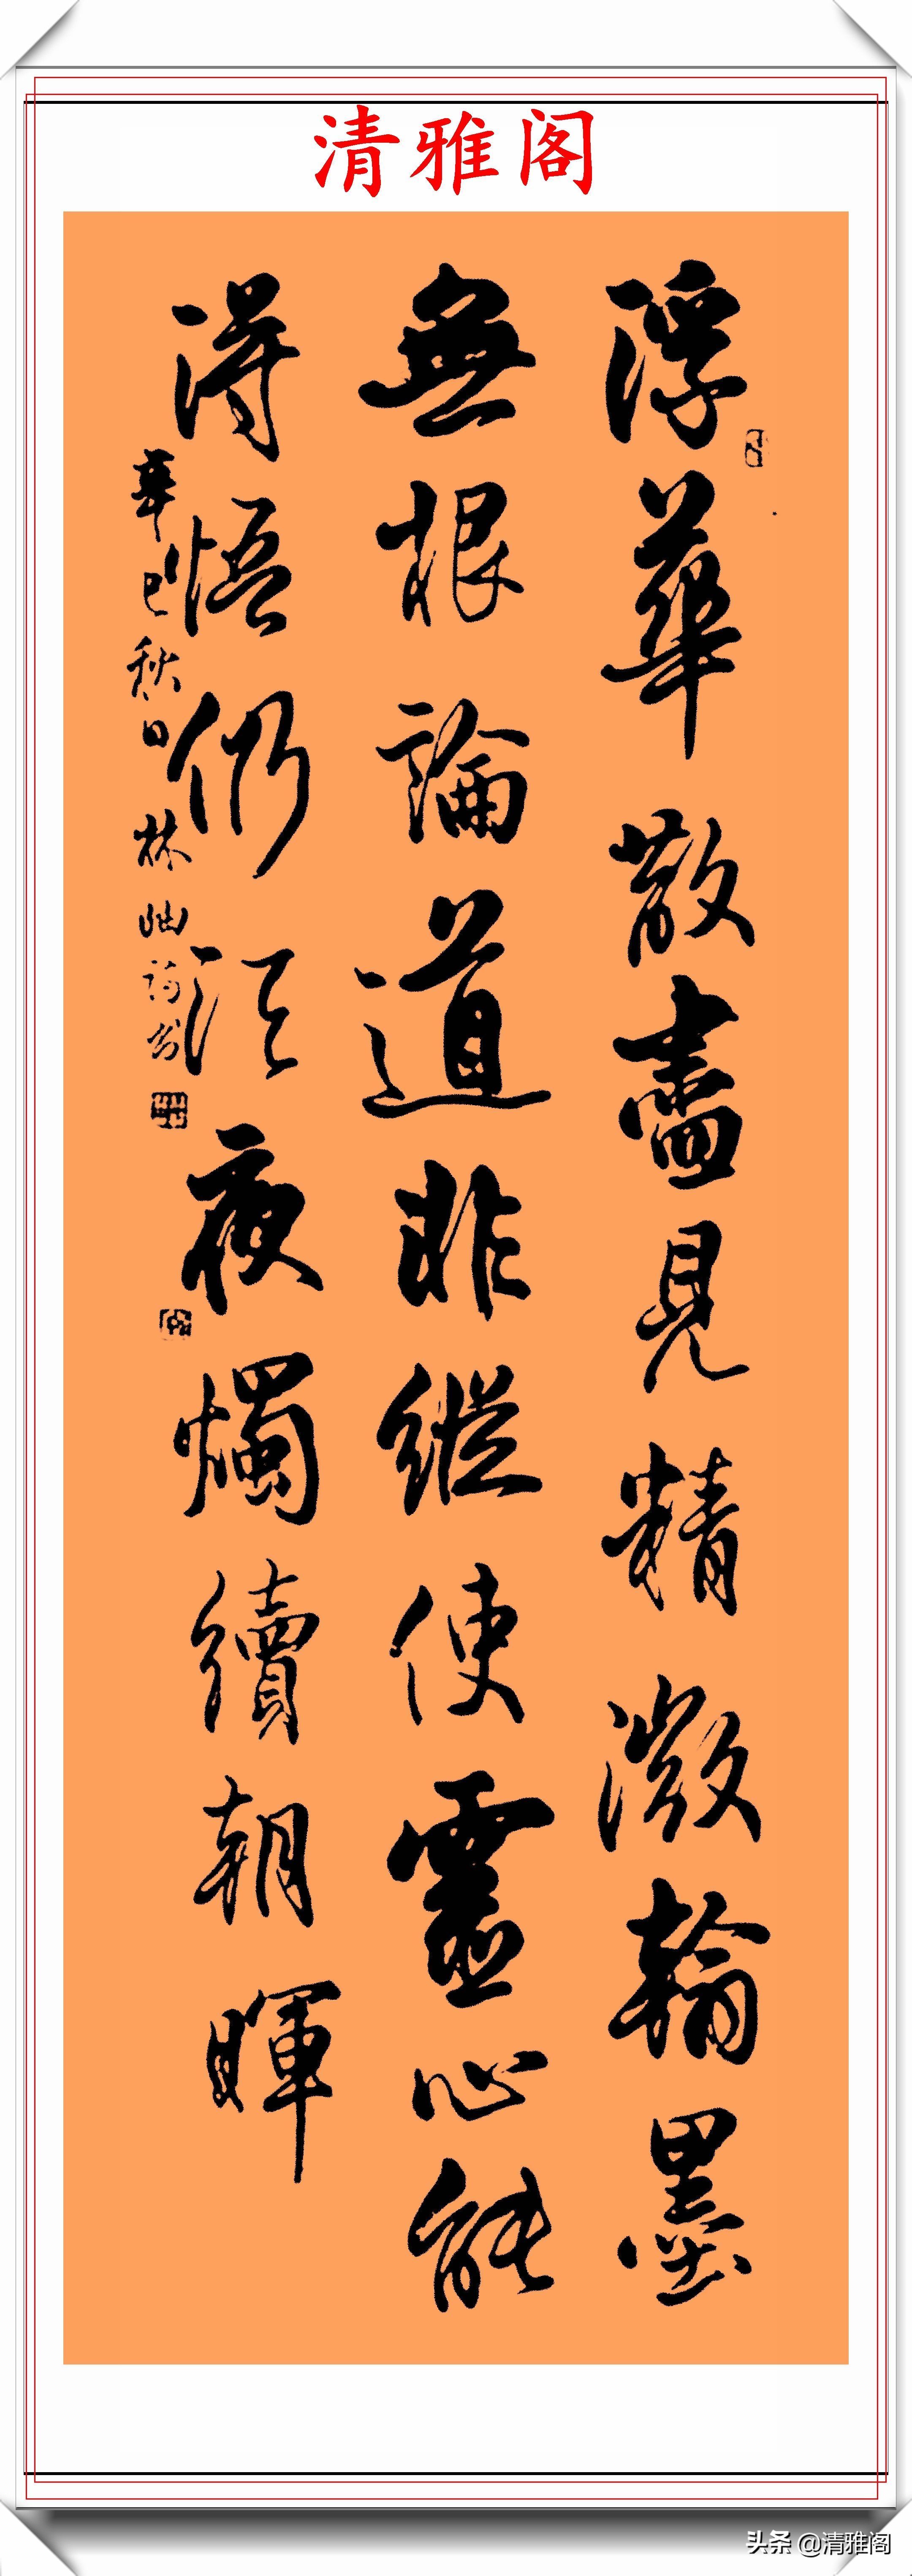 清雅阁
浮華散盡見精微翰墨
無根論道非縱使靈心能
得悟仍須夜燭續朝暉
辛巳秋日林岫詩書
头条 @清雅阁